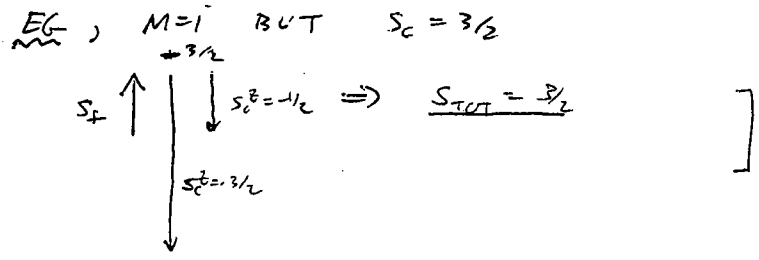 EG, M=1 BUT S_c = 3/2
+3/2
S_f ↑ ↓ S_c^z=-1/2 ⇒ S_TOT = 3/2 ]
S_c^z=-3/2